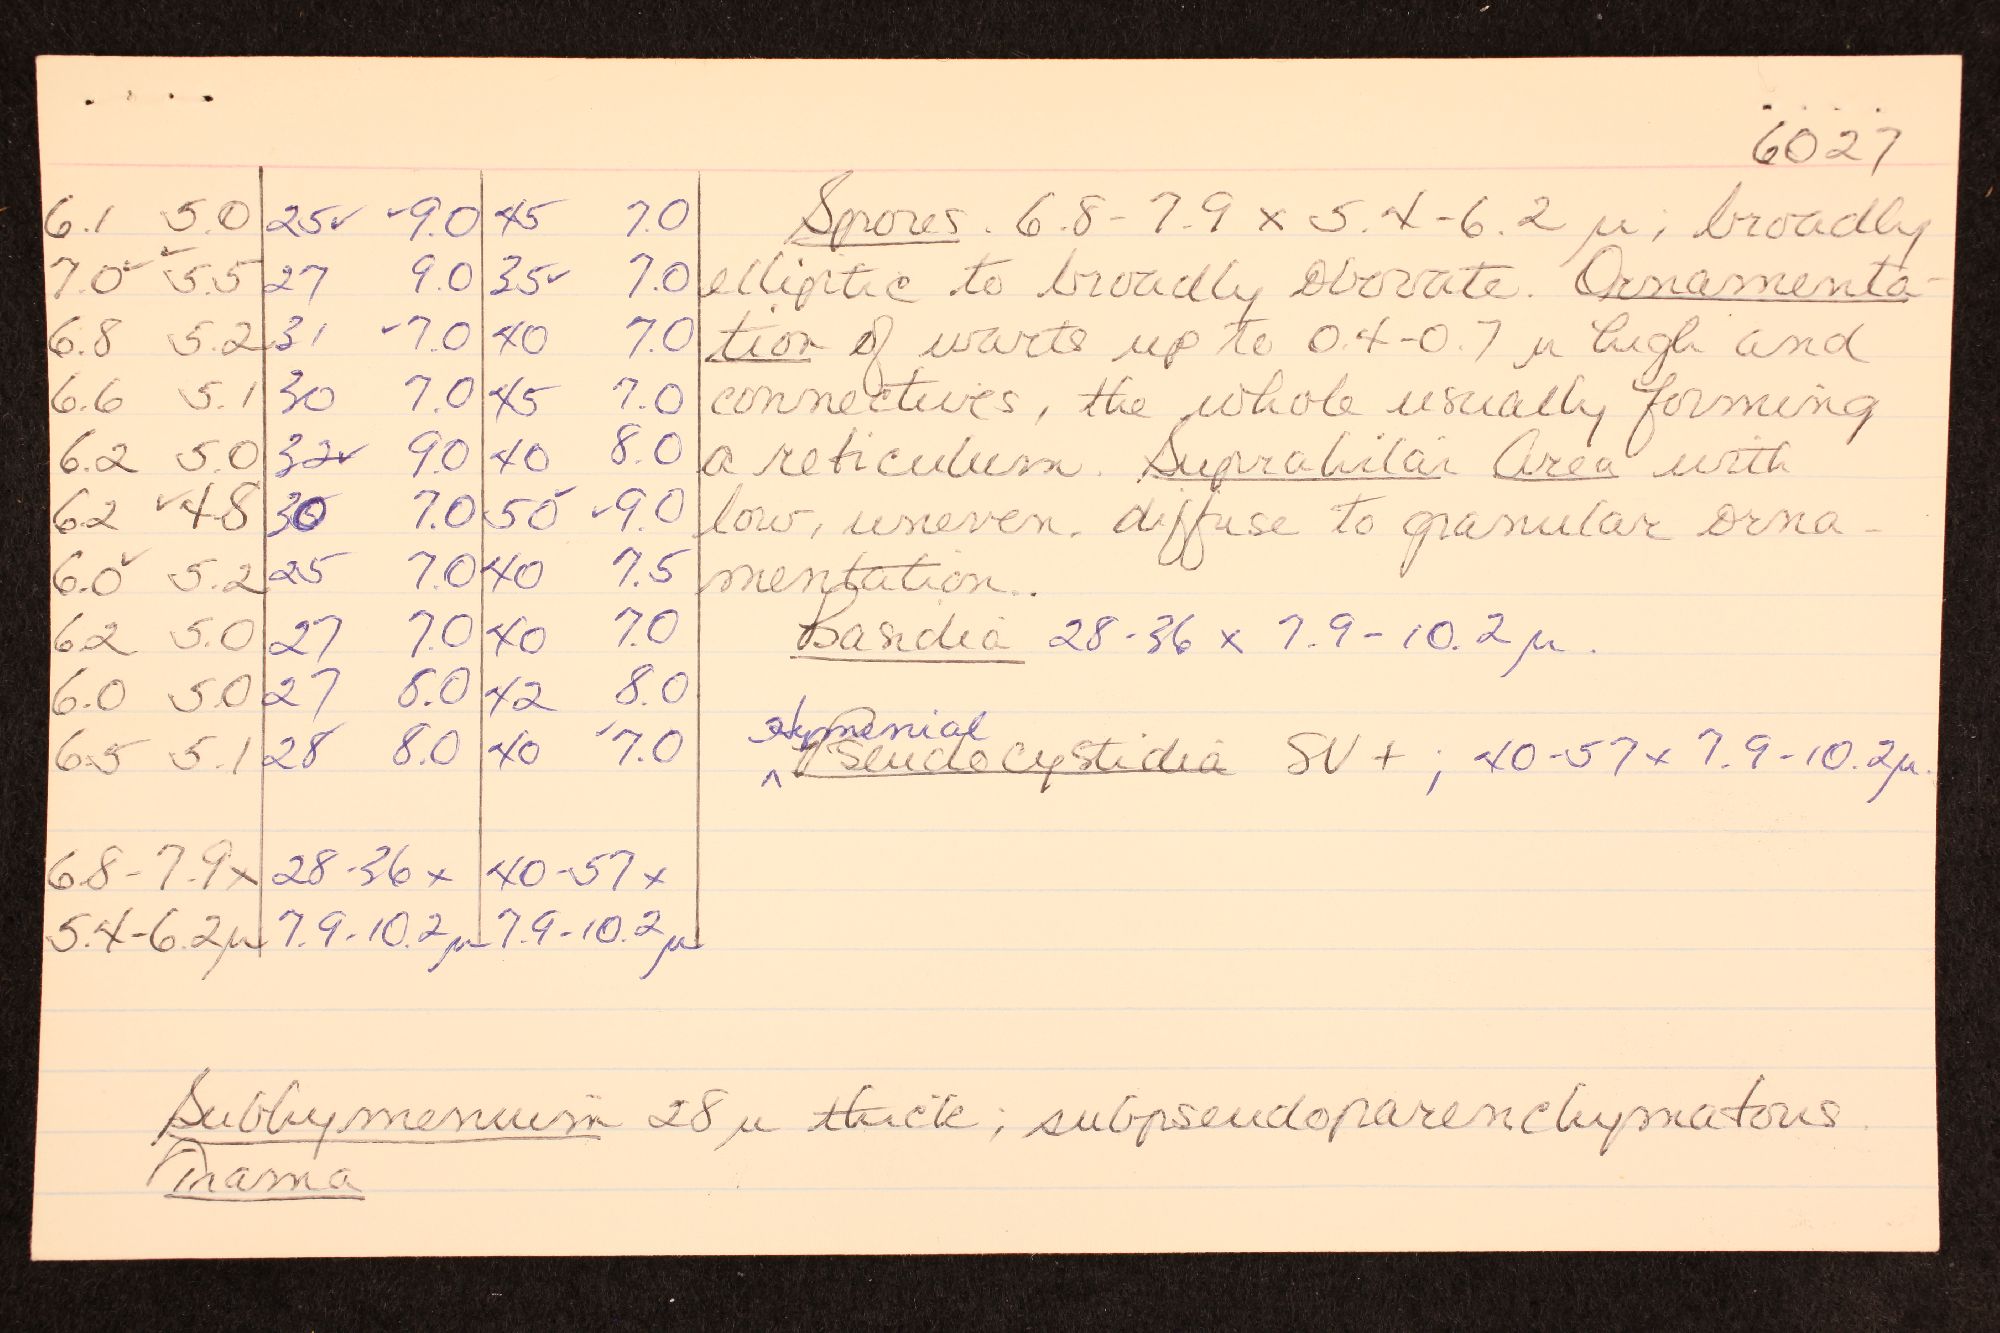 6027
6.1 5.0 25✓ ✓9.0 45 7.0
7.0✓ ✓5.5 27 9.0 35✓ 7.0
6.8 5.2 31 ✓7.0 40 7.0
6.6 5.1 30 7.0 45 7.0
6.2 5.0 32✓ 9.0 40 8.0
6.2 ✓4.8 30 7.0 50✓ ✓9.0
6.0✓ 5.2 25 7.0 40 7.5
6.2 5.0 27 7.0 40 7.0
6.0 5.0 27 8.0 42 8.0
6.5 5.1 28 8.0 40 ✓7.0
6.8-7.9x 28-36x 40-57x
5.4-6.2µ 7.9-10.2µ 7.9-10.2µ
Spores. 6.8-7.9 x 5.4-6.2 µ; broadly
elliptic to broadly obovate. Ornamenta-
tion of warts up to 0.4-0.7 µ high and
connectives, the whole usually forming
a reticulum. Suprahilar Area with
low, uneven, diffuse to granular orna-
mentation..
Basidia 28-36 x 7.9-10.2µ.
Hymenial
^ Pseudocystidia SV+; 40-57x 7.9-10.2µ.
Subhymenium 28µ thick; subpseudoparenchymatous.
Trama